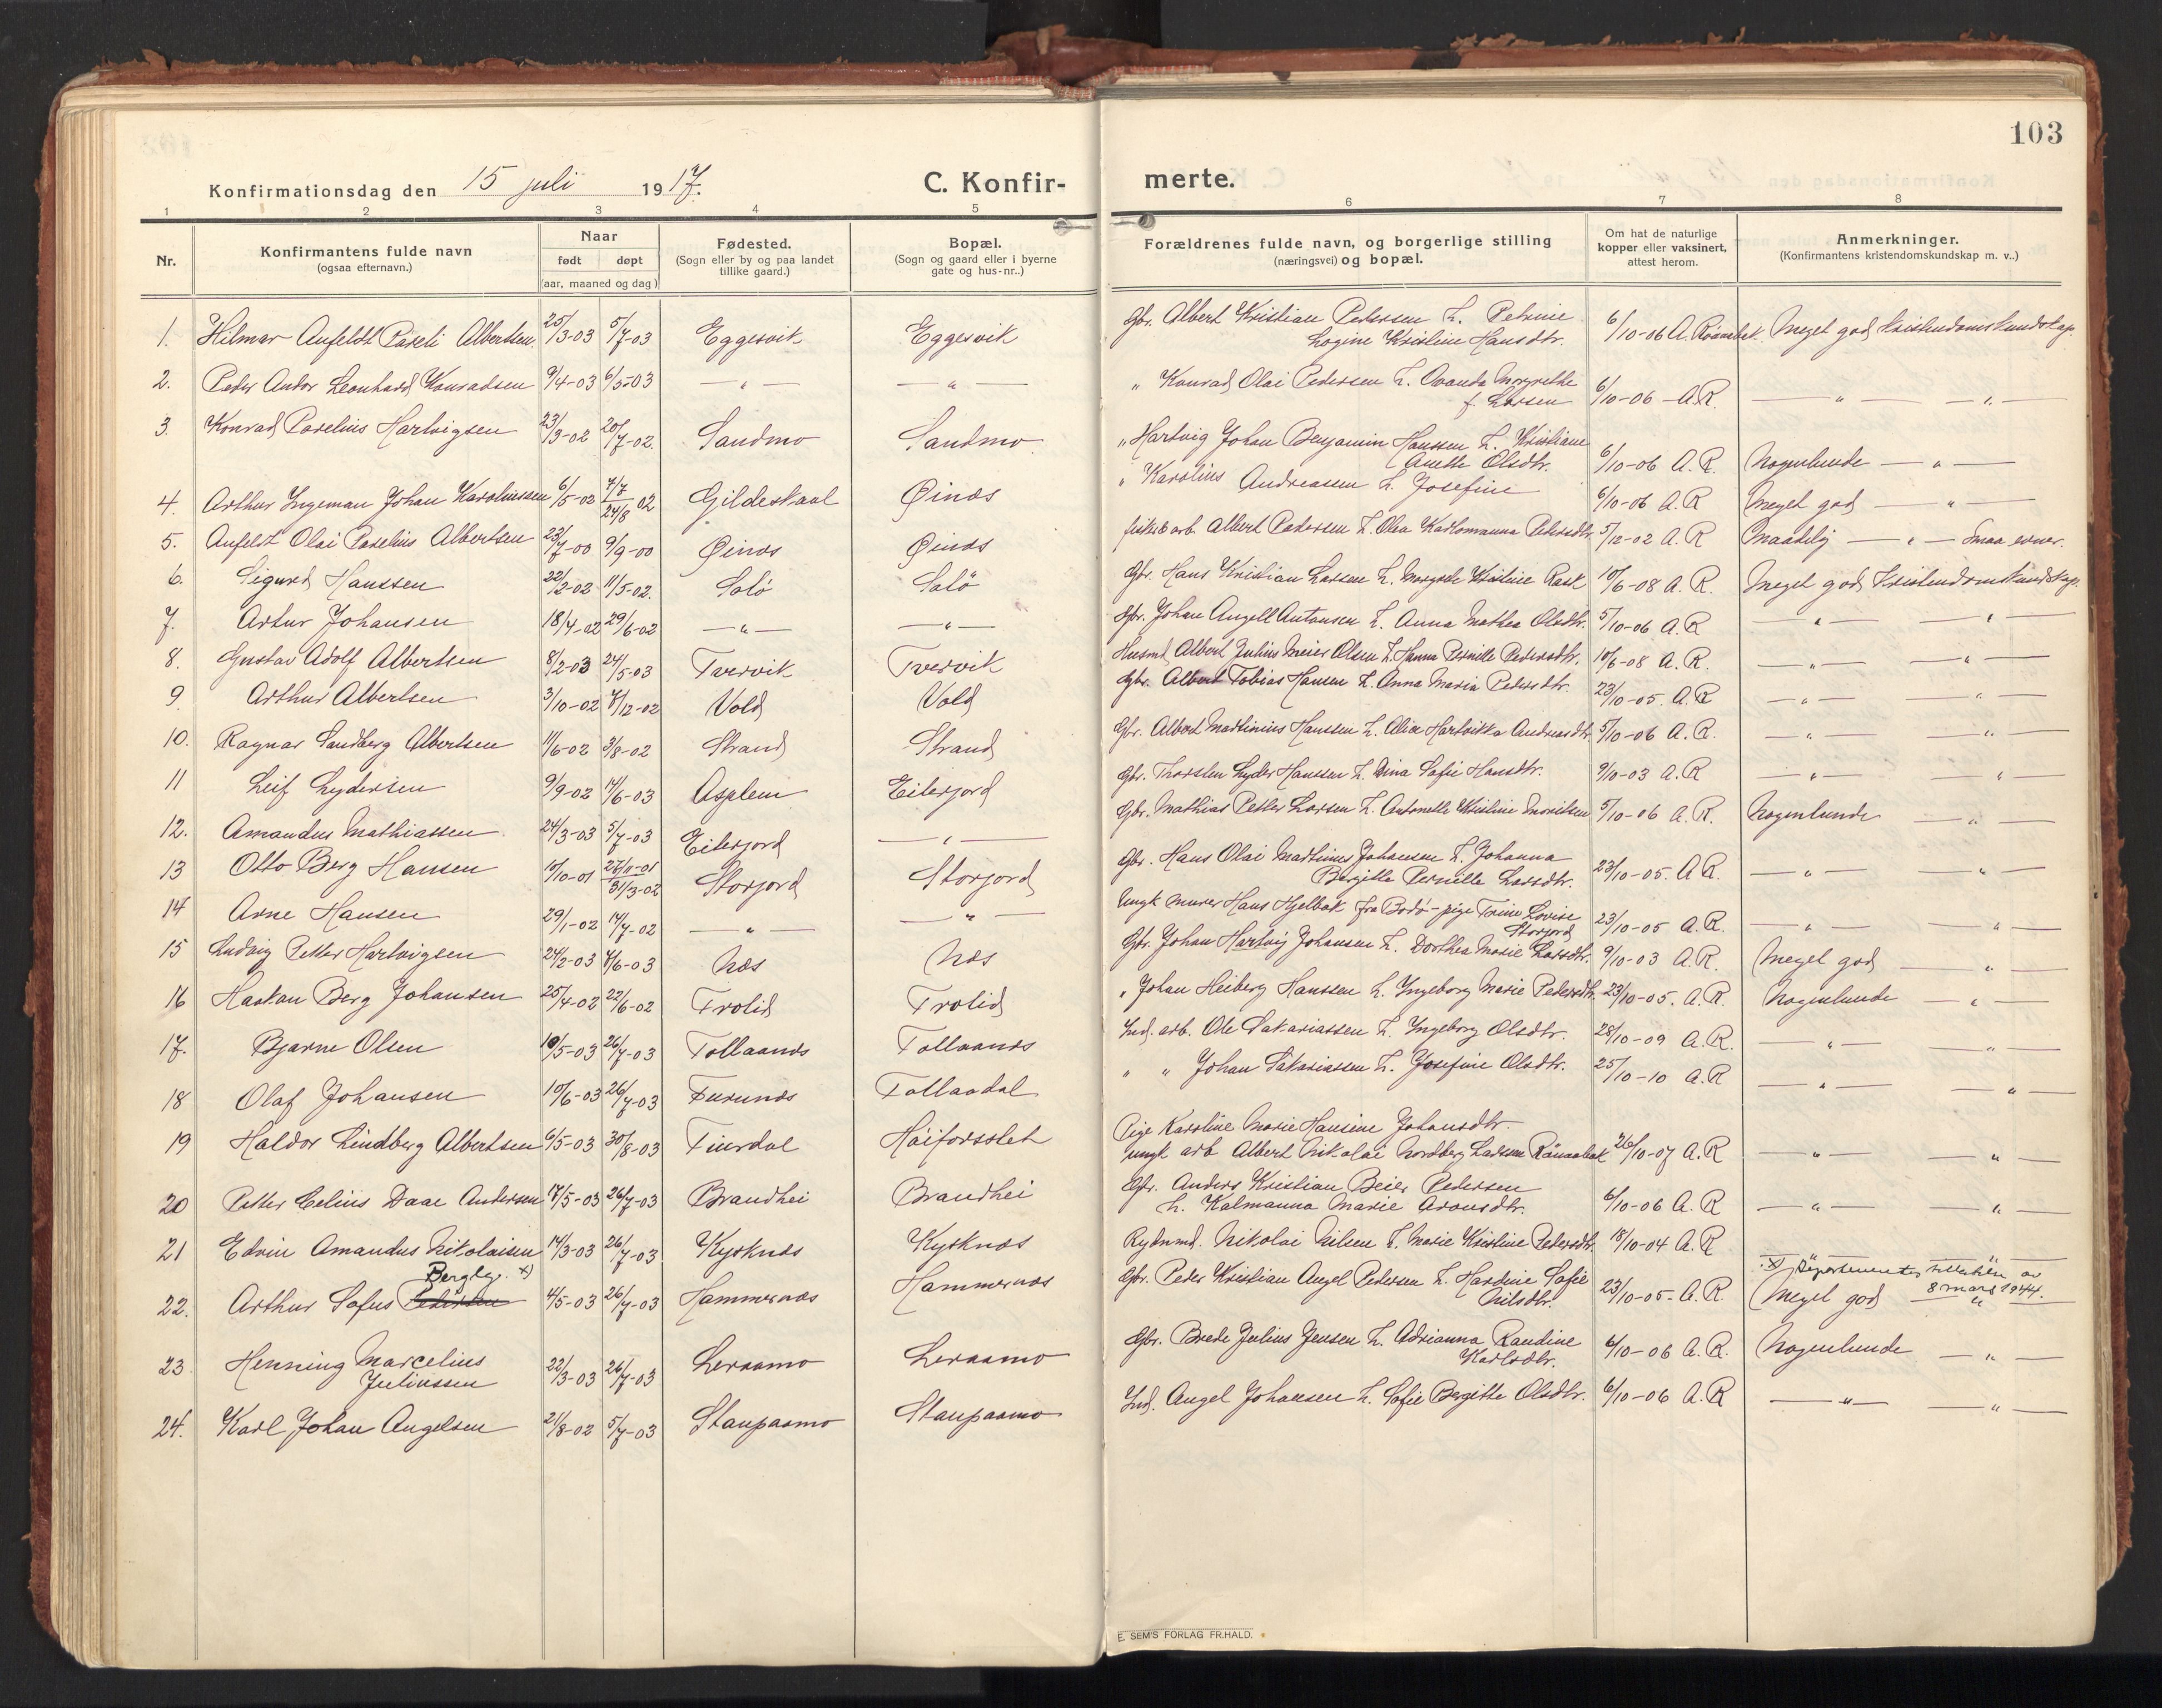 103
Konfirmationsdag den 15 juli 1917. C. Konfir- merte.
1 2 3 4 5 6 7 8
Nr. Konfirmantens fulde navn (ogsaa efternavn.) Naar født døpt (aar, maaned og dag) Fødested. (Sogn eller by og paa landet tillike gaard.) Bopæl. (Sogn og gaard eller i byerne gate og hus-nr..) Forældrenes fulde navn, og borgerlige stilling (næringsvei) og bopæl. Om hat de naturlige kopper eller vaksinert, attest herom. Anmerkninger. (Konfirmantens kristendomskundskap m. v..)
1. Hilmar Anfeldt Pareli Albertsen 25/3-03 5/7-03 Eggesvik Eggesvik Gbr. Albert Kristian Pedersen H. Petrine
Logine Kristine Hansdtr. 6/10-06 A. Rönnebek. Meget god kristendomskundskap.
2. Peder Andor Leonhard Konradsen 9/4-03 6/5-03 — " — — " — " Konrad Olai Pedersen H. Ovanda Margrethe
f. Larsen 6/10-06 A.R. — " — — " —
3. Konrad Parelius Hartvigsen 23/3-02 20/7-02. Sandmo Sandmo " Hartvig Johan Benjamin Hanssen H. Kristiane
Anette Olsdtr. 6/10-06 A. R. Nogenlunde — " —
4. Arthur Ingeman Johan Karoliussen 6/5-02 7/7 24/8 02 Gildeskaal Øinæs " Karolius Andreassen H. Josefine 6/10-06 A. R Meget god — " —
5. Anfeldt Olai Parelius Albertsen 23/7-00 9/9-00 Øinæs Øinæs fabrik arb. Albert Pedersen H. Olea Karlomanna Pedersdtr. 5/12-02 A. R Maadelig — " — Smaa evner.
6. Sigurd Hanssen 22/2-02 11/5-02. Solö Solö Gbr. Hans Kristian Larsen H. Margrete Kristine Rask 10/6-08 A. R. Meget god Kristendomskundskap.
7. Artur Johansen 18/4-02 29/6-02 — " — — " — Gbr. Johan Angell Antonsen H. Anna Mathea Olsdtr. 5/10-06 A. R — " — — " —
8. Gustav Adolf Albertsen 8/2-03 24/5-03 Tvervik Tvervik Husmd. Albert Julius Meier Olsen H. Hanna Pernille Pedersdtr. 10/6-08 A. R. — " — — " —
9 Arthur Albertsen 3/10-02 7/12-02 Vold Vold Gbr. Albert Tobias Hansen H. Anna Maria Pedersdtr. 23/10-05. A. R — " — — " —
10. Ragnar Sandberg Albertsen 11/6-02 3/8-02 Strand Strand Gbr. Albert Martinius Hanssen H. Oline Hartvikka Andreasdtr. 5/10-06 A. R. — " — — " —
11 Leif Lydersen 9/9-02 14/6-03 Asplem Eiterjord Gbr. Thorsten Lyder Hanssen H. Dina Sofie Hansdtr. 9/10-03 A. R — " — — " —
12. Amandus Mathiassen 24/3-03 5/7-03 Eiterjord — " — Gbr. Mathias Petter Larsen H. Antonette Kristine Moritsen 5/10-06 A. R. Nogenlunde — " —
13 Otto Berg Hansen 10/10-01 31/3-02 Storjord Storjord Gbr. Hans Olai Martinus Johansen H. Johanna
Bergitte Pernelle Larsdtr. 23/10-05. A. R. — " — — " —
14 Arne Hansen 29/1-02 14/7-02 — " — — " — Ungk. murer Hans Hjelbak fra Bodö - pige Trine Lovise
Storjord 23/10-05 A. R. — " — — " —
15 Ludvig Petter Hartvigsen 24/2-03 7/6-03 Næs Næs Gbr. Johan Hartvig Johansen H. Dorthea Marie Larsdtr. 9/10-03 A. R. Meget god — " —
16 Haakan Berg Johansen 25/4-02 22/6-02 Trolid Trolid " Johan Heiberg Hanssen H. Ingeborg Marie Pedersdtr. 23/10-05. A. R. Nogenlunde — " —
17. Bjarne Olsen 10/5-03 26/7-03 Tollaanæs Tollaanæs Ind. arb. Ole Sakariassen H. Ingeborg Olsdtr. 28/10-09 A. R. — " — — " —
18 Olaf Johansen 10/6-03 26/7-03 Furunæs Tollaadal " " Johan Sakariassen H. Josefine Olsdtr. 25/10-10 A. R — " — — " —
19 Haldor Lindberg Albertsen 6/5-03 30/8-03 Finsdal Höiforsslet Pige Karoline Marie Hansine Johansdtr.
ungk arb Albert Nikolai Nordberg Larsen Rönaabek 26/10-07 A. R — " — — " —
20 Petter Celius Daae Andersen 17/5-03 26/7-03 Brandhei Brandhei Gbr. Anders Kristian Beier Pedersen
H. Kalmanna Marie Aronsdtr. 6/10-06 A. R — " — — " —
21 Edvin Amandus Nikolaisen 14/3-03 26/7-03 Kysknæs Kysknæs Rydnmd. Nikolai Nilsen H. Marie Kristine Pedersdtr. 18/10-04 A. R — —
22. Arthur Sofus Pedersen Bergly. x) 4/5-03 26/7-03 Hammernæs Hammernæs Gbr. Peder Kristian Angel Pedersen H. Hardine Sofie
Nilsdtr. 23/10-05- A. R. x) Departementets tillatelse av
8 mars 1944.
Meget god "
23 Henning Marcelius
Juliussen 22/3-03 26/7-03 Leraamo Leraamo Gbr. Brede Julius Jensen H. Adrianna Randine
Karlsdtr. 6/10-06 A. R. Nogenlunde — " —
24. Karl Johan Angelsen 21/8-02 5/7-03 Staupaamo Staupaamo Ind. Angel Johansen H. Sofie Bergitte Olsdtr. 6/10-06 A. R — " — — " —
E. SEM'S FORLAG FR.HALD.